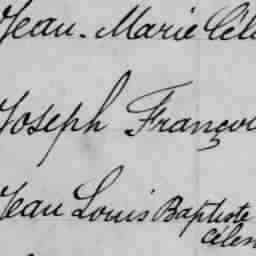 Jean-Marie Cél
Joseph Françoi
Jean Louis Baptiste
Célen